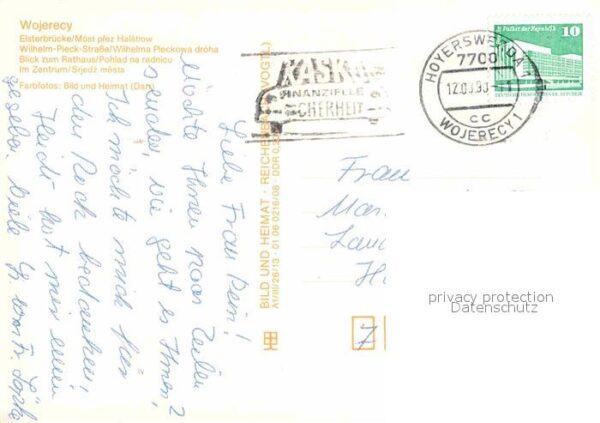 Wojerecy
Elsterbrücke/Móst přez Halštrow
Wilhelm-Pieck-Straße/Wilhelma Pieckowa dróha
Blick zum Rathaus/Pohlad na radnicu
Im Zentrum/Srjedź města
Farbfotos: Bild und Heimat (Dars)
Liebe Frau
Möchte Ihnen paar Zeilen
senden, wie geht es Ihnen?
Ich möchte mich hier
den Rock bedanken,
Heidi hat mir einen
gegeben. Viele Gr. von Fr.
BILD UND HEIMAT · REICHENBACH (VOGTL)
A1/III/26/13 · 01 06 0216/08 · DDR
KASKO
FINANZIELLE
SICHERHEIT
HOYERSWERDA 1
7700
12.03.90
cc
WOJERECY 1
P.Palast der Republik
10
DEUTSCHE DEMOKRATISCHE REPUBLIK
Frau
Mar
Lau
H
privacy protection
Datenschutz